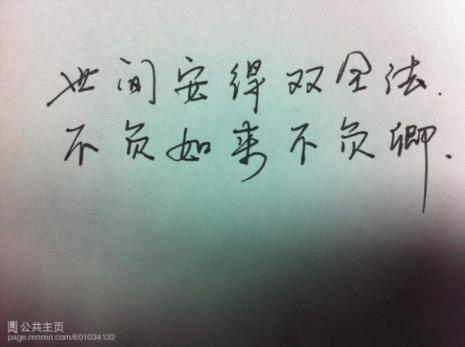 世间安得双全法.
不负如来不负卿.
圆公共主页
page.renren.com/601034132